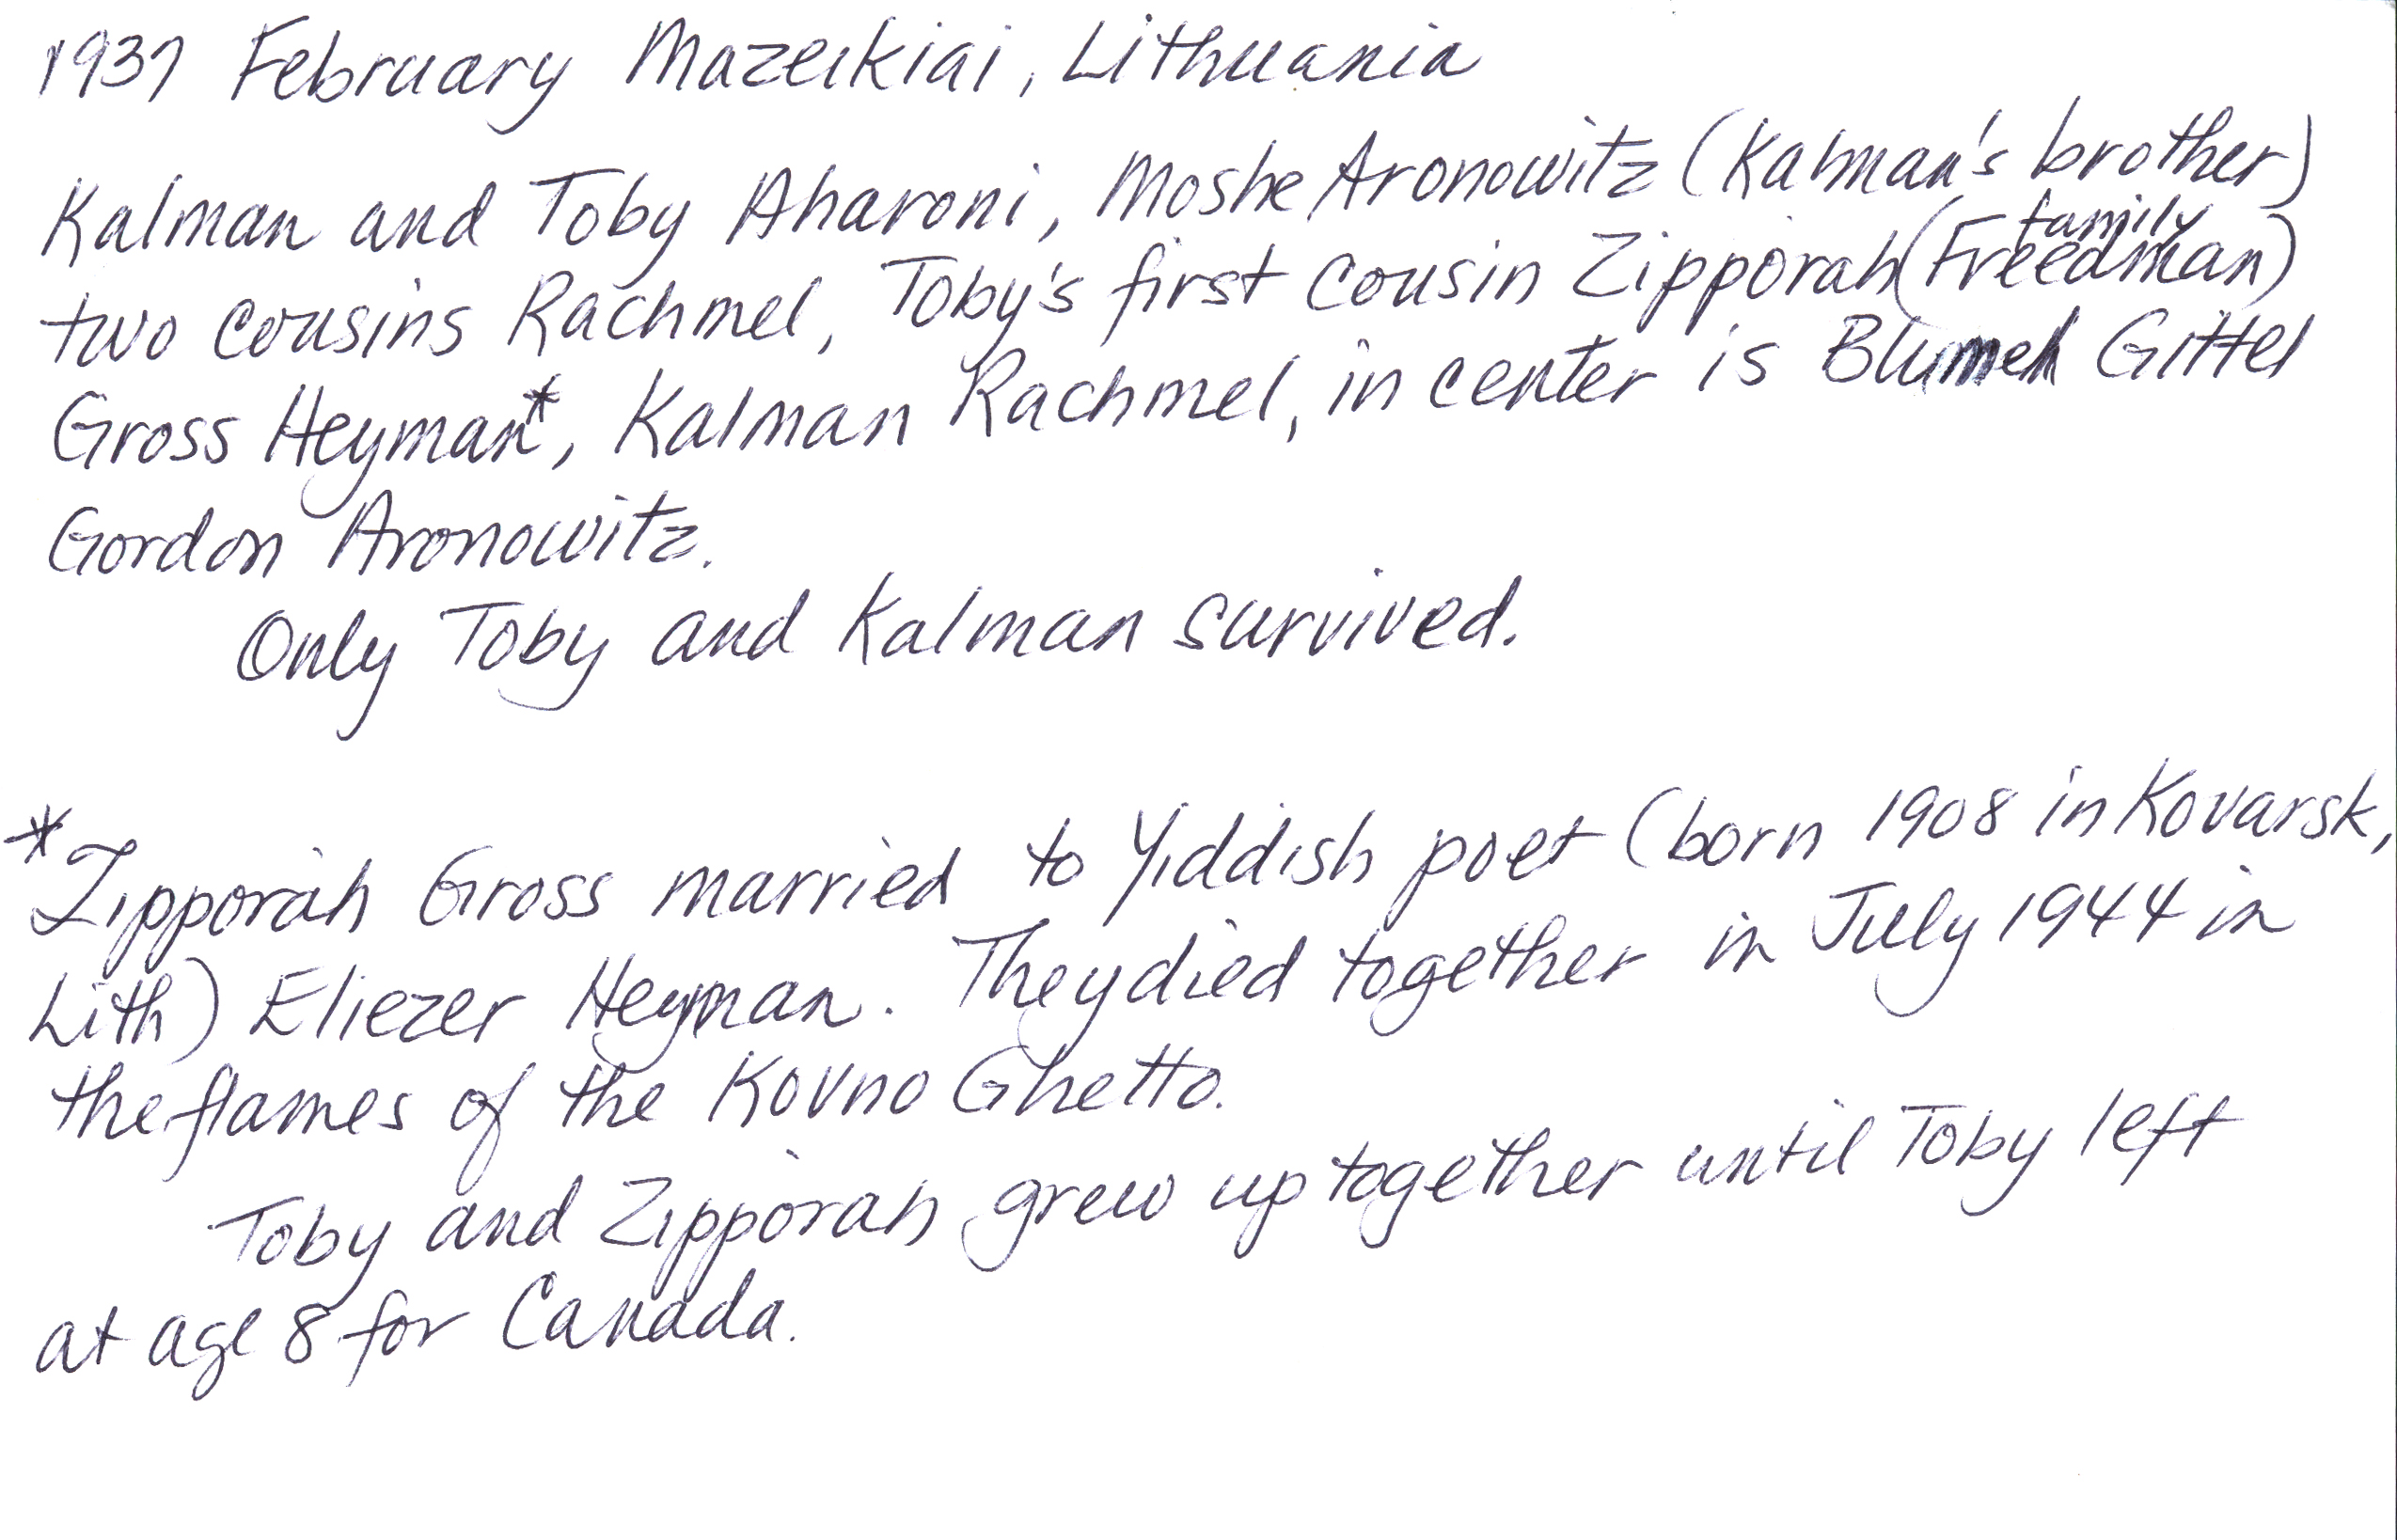 1937 February Mazeikiai, Lithuania
Kalman and Toby Aharoni, Moshe Aronowitz (Kalman's brother)
two cousins Rachmel, Toby's first cousin Zipporah (Freedman family)
Gross Heyman*, Kalman Rachmel, in center is Blumeh Gittel
Gordon Aronowitz.
Only Toby and Kalman survived.
*Zipporah Gross married to Yiddish poet (born 1908 in Kovarsk,
Lith) Eliezer Heyman. They died together in July 1944 in
the flames of the Kovno Ghetto.
Toby and Zipporah grew up together until Toby left
at age 8 for Canada.